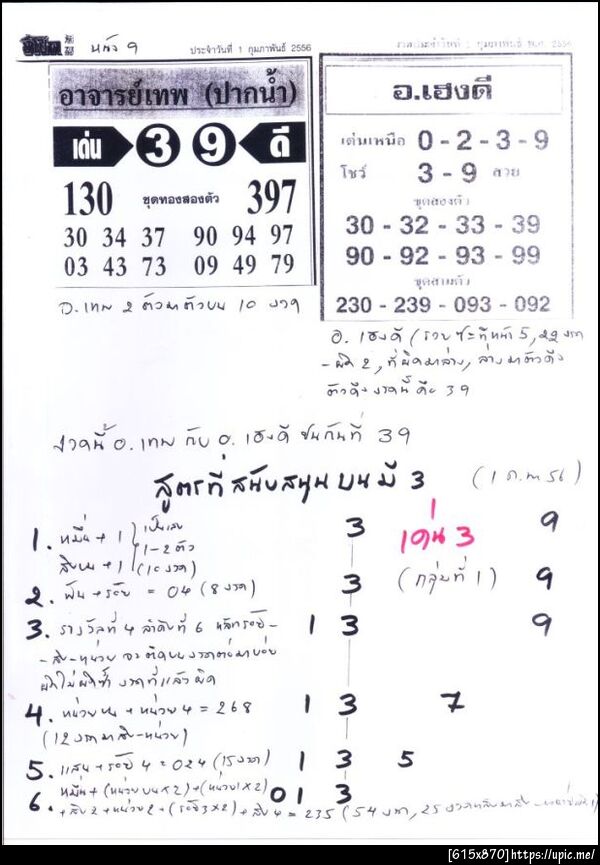 หน้า 9
ประจำวันที่ 1 กุมภาพันธ์ 2556
อาจารย์เทพ (ปากน้ำ)
เด่น 3 9 ดี
130 ชุดทองสองตัว 397
30 34 37 90 94 97
03 43 73 09 49 79
อ.เทพ 2 ตัวมาตัวบน 10 งวด
งวดประจำวันที่ 1 กุมภาพันธ์ พ.ศ. 2556
อ.เฮงดี
เด่นเหนือ 0 - 2 - 3 - 9
โชว์ 3 - 9 สวย
ชุดสองตัว
30 - 32 - 33 - 39
90 - 92 - 93 - 99
ชุดสามตัว
230 - 239 - 093 - 092
อ. เฮงดี (รวย หน้า 5, 22 งวด
- ผิด 2, ที่ผิดมาล่าง, ล่างมาตัวดึง
ตัวดึงงวดนี้คือ 39
งวดนี้ อ. เทพ กับ อ. เฮงดี ชนกันที่ 39
สูตรที่สนับสนุนบนมี 3 (1 ก.พ 56)
1. หมื่น + 1 เป็นเลข 3 เด่น 3 9
1-2 ตัว
สิบบน + 1 (10 งวด)
2. พัน + ร้อย = 04 (8 งวด) 3 (กลุ่มที่ 1) 9
3. รางวัลที่ 4 ลำดับที่ 6 หลักร้อย- 1 3 9
-สิบ-หน่วย จะติดบนงวดต่อมาบ่อย
ผิดไม่ผิดซ้ำ งวดที่แล้วผิด
4. หน่วยบน + หน่วย 4 = 268 1 3 7
(12 งวดมาสิบ-หน่วย)
5. แสน + ร้อย 4 = 024 (15 งวด) 1 3 5
6. หมื่น + (หน่วยบน x 2) + (หน่วย 1 x 2) 0 1 3
+ สิบ 2 + หน่วย 2 + (ร้อย 3 x 2) + สิบ 4 = 235 (54 งวด, 25 งวด
[615x870] https://upic.me/